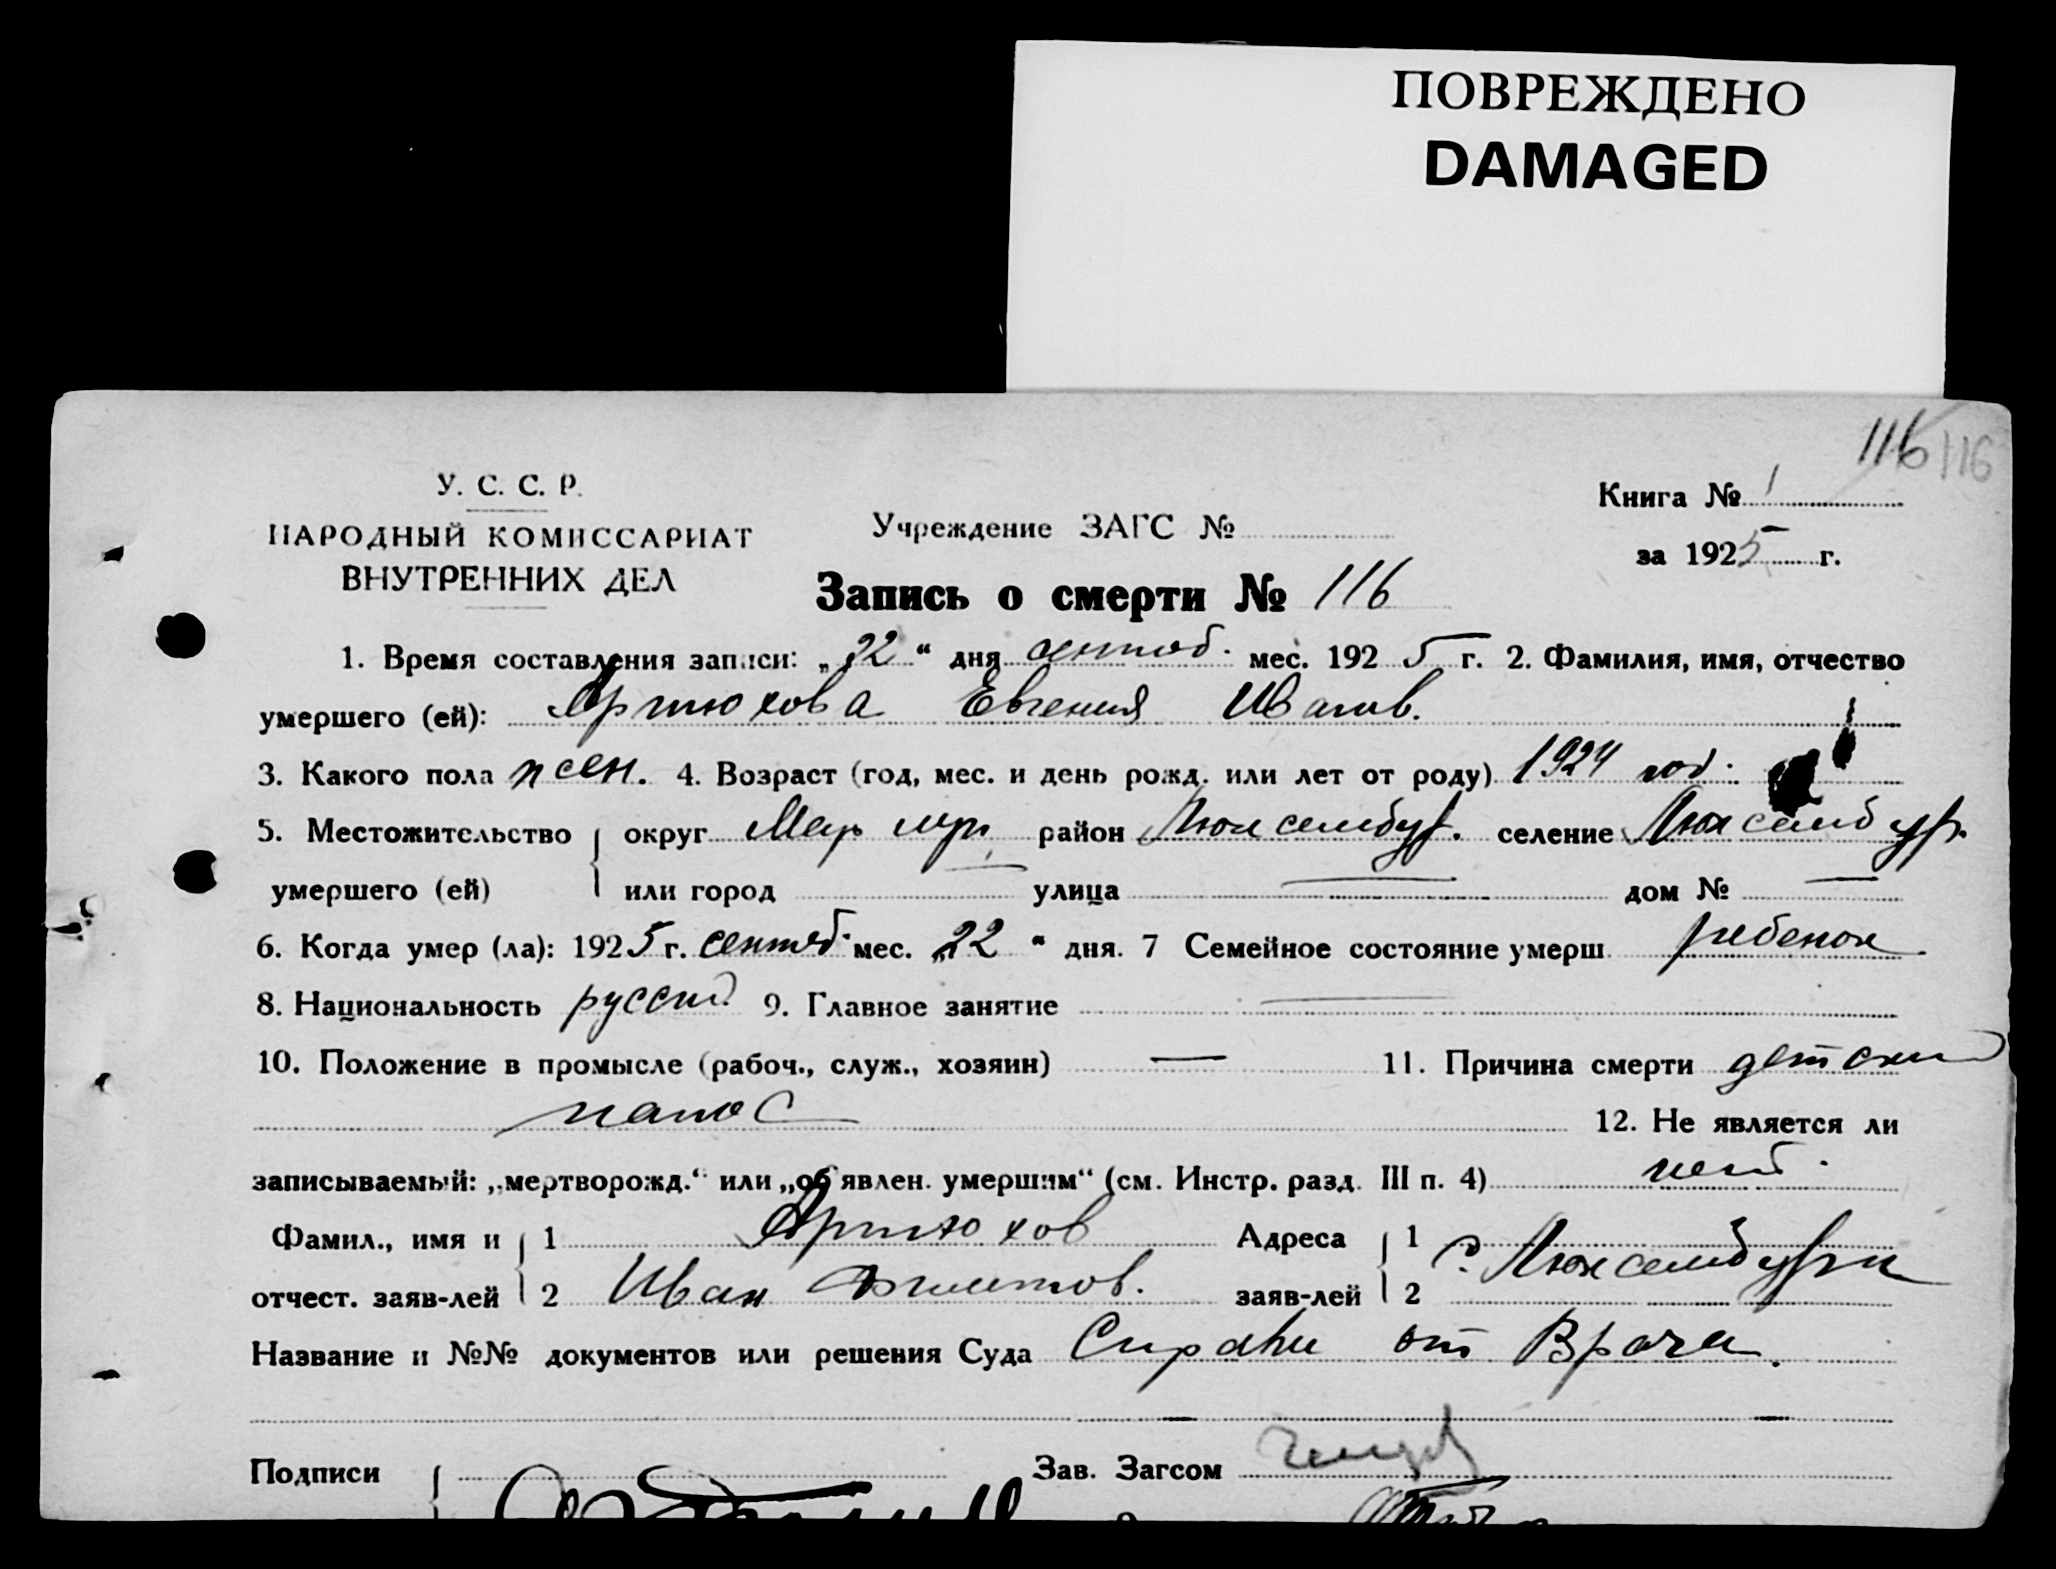 ПОВРЕЖДЕНО
DAMAGED
116 116
У. С. С. Р.
НАРОДНЫЙ КОМИССАРИАТ
ВНУТРЕННИХ ДЕЛ
Учреждение ЗАГС №
Книга № 1
за 1925 г.
Запись о смерти № 116
1. Время составления записи: „22“ дня сентяб. мес. 1925 г. 2. Фамилия, имя, отчество
умершего (ей): Артюхова Евгения Иванов.
3. Какого пола жен. 4. Возраст (год, мес. и день рожд. или лет от роду) 1924 год.
5. Местожительство округ Мариуп. район Люксембург. селение Люксембург.
умершего (ей) или город — улица — дом № —
6. Когда умер (ла): 1925 г. сентяб. мес. „22“ дня. 7 Семейное состояние умерш. ребенок
8. Национальность русский 9. Главное занятие —
10. Положение в промысле (рабоч., служ., хозяин) — 11. Причина смерти детский
понос 12. Не является ли
записываемый: „мертворожд.“ или „об‘явлен. умершим“ (см. Инстр. разд. III п. 4) нет.
Фамил., имя и 1 Артюхов Адреса 1 с. Люксембург
отчест. заяв-лей 2 Иван заяв-лей 2
Название и №№ документов или решения Суда Справки от Врача.
Подписи Зав. Загсом